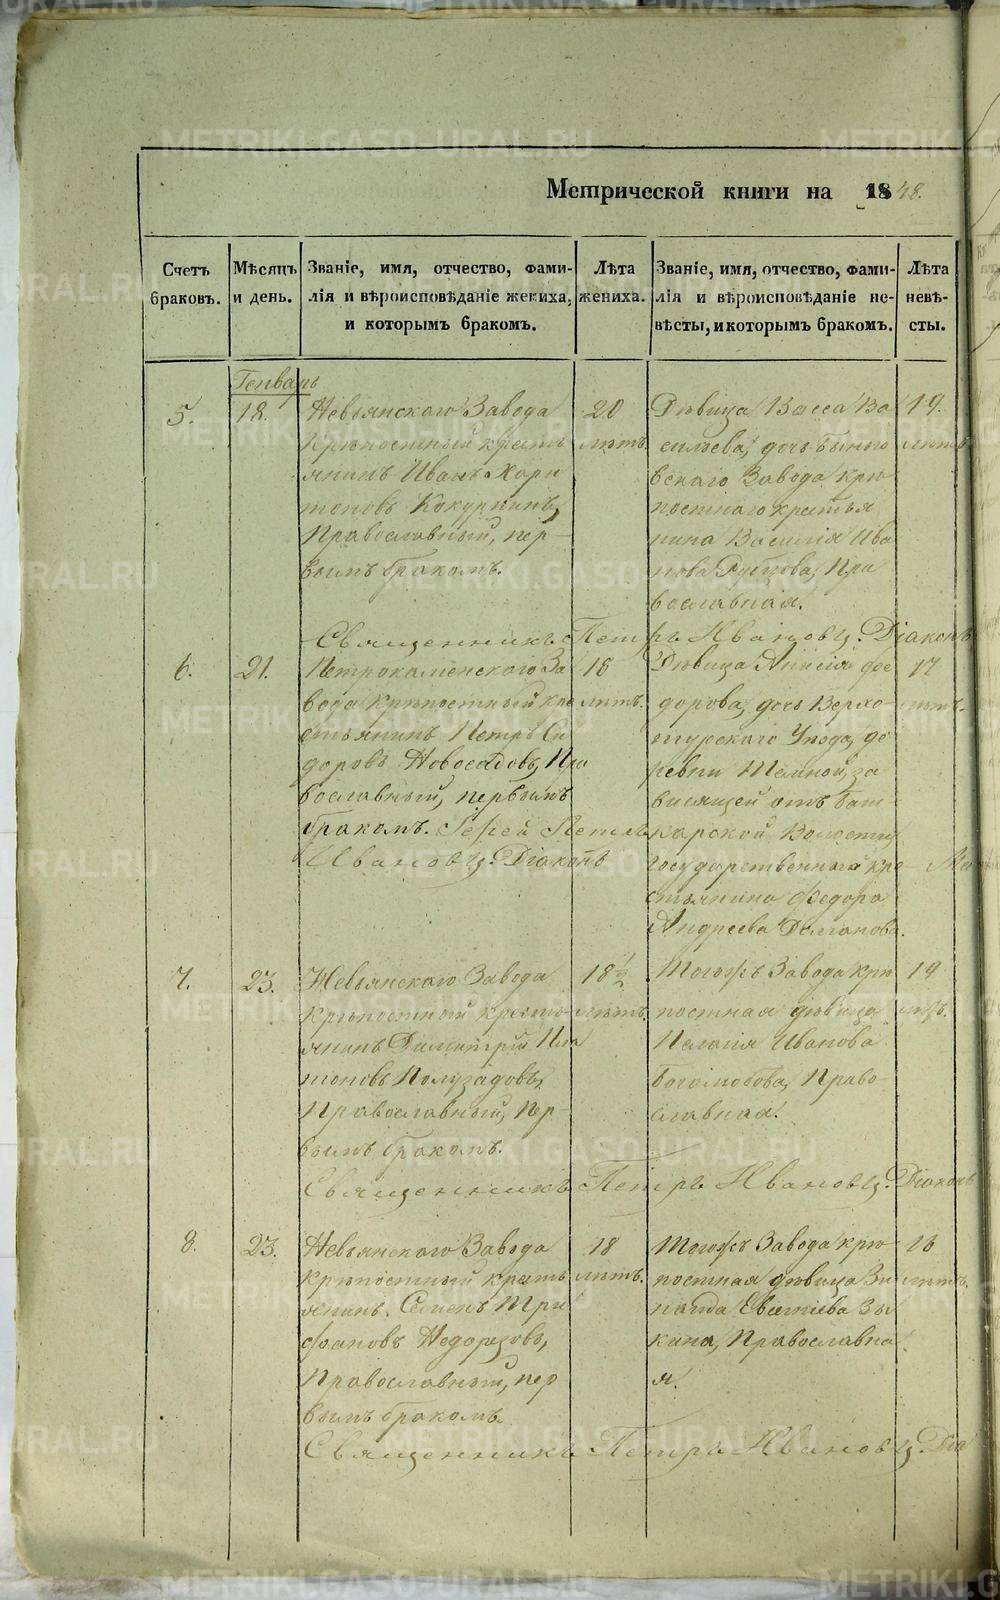 Метрической книги на 1848.
Счетъ браковъ.
Мѣсяцъ и день.
Званіе, имя, отчество, фами-
лія и вѣроисповѣданіе жениха,
и которымъ бракомъ.
Лѣта жениха.
Званіе, имя, отчество, фами-
лія и вѣроисповѣданіе не-
вѣсты, и которымъ бракомъ.
Лѣта невѣ-
сты.
Генварь
5.
18.
Невьянскаго Завода
крѣпостный кресть
янинъ Иванъ Хари
тоновъ Кокуркинъ,
Православный, пер-
вымъ бракомъ.
20
лѣтъ.
Дѣвица Васса Ва
сильева, дочь Быньго
вскаго Завода крѣ
постнаго крестья
нина Василія Ива
нова Рубцова, Пра
вославная.
19.
лѣтъ
Священникъ Петръ Ивановъ. Діаконъ
6.
21.
Петрокаменскаго За
вода крѣпостный кре
стьянинъ Петръ Си
доровъ Новосадовъ, Пра
вославный, первымъ
бракомъ. Іерей Петръ
Ивановъ. Діаконъ
18
лѣтъ.
Дѣвица Анисія Ѳе
дорова, дочь Верхо-
турскаго Уѣзда, де
ревни Темной, за
висящей отъ Баш-
карской Волости,
государственнаго кре-
стьянина Ѳедора
Андреева
17
лѣтъ.
7.
23.
Невьянскаго Завода
крѣпостный кресть-
янинъ Димитрій Пла
тоновъ Полузадовъ,
Православный, пер-
вымъ бракомъ.
18 1/2
лѣтъ.
Тогожъ Завода крѣ
постная дѣвица
Пелагія Иванова
Богомолова, Право-
славная.
19
лѣтъ.
Священникъ Петръ Ивановъ. Діаконъ
8.
23.
Невьянскаго Завода
крѣпостный кресть
янинъ Семенъ Три
фановъ Недорезовъ,
Православный, пер
вымъ бракомъ.
18
лѣтъ.
Тогожъ Завода крѣ
постная дѣвица Зи
наида Евгеніева Зы
кина, Православна
я.
18
лѣтъ.
Священникъ Петръ Ивановъ. Діа
METRIKI.GASO-URAL.RU